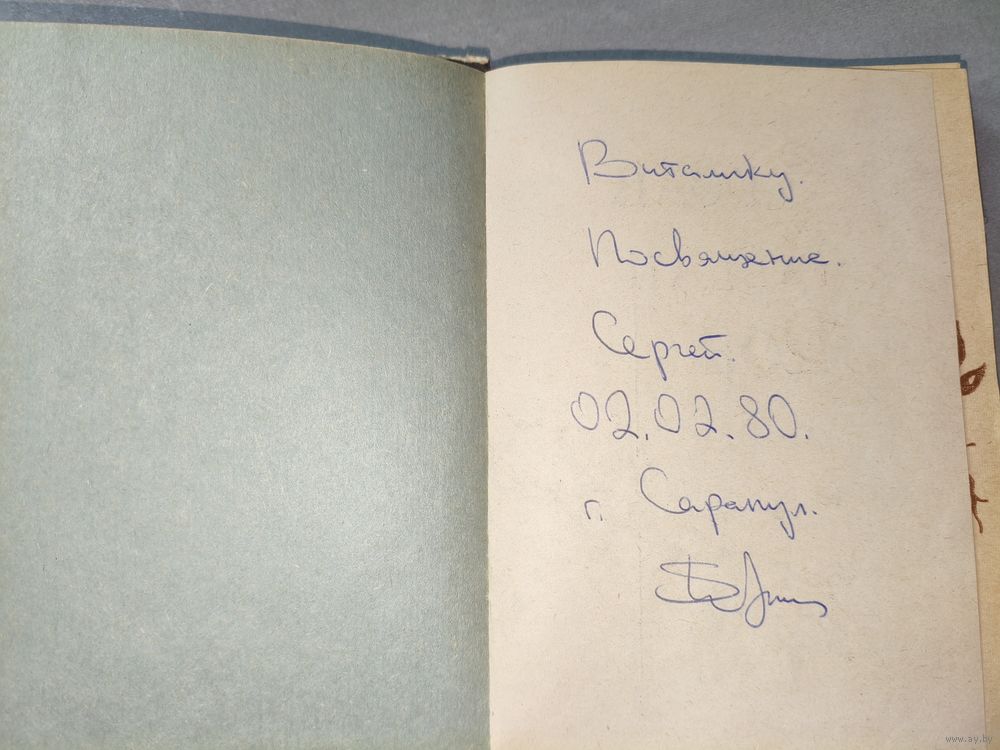 Виталику.
Посвящение.
Сергей.
02.02.80.
г. Сарапул.
www.ay.by